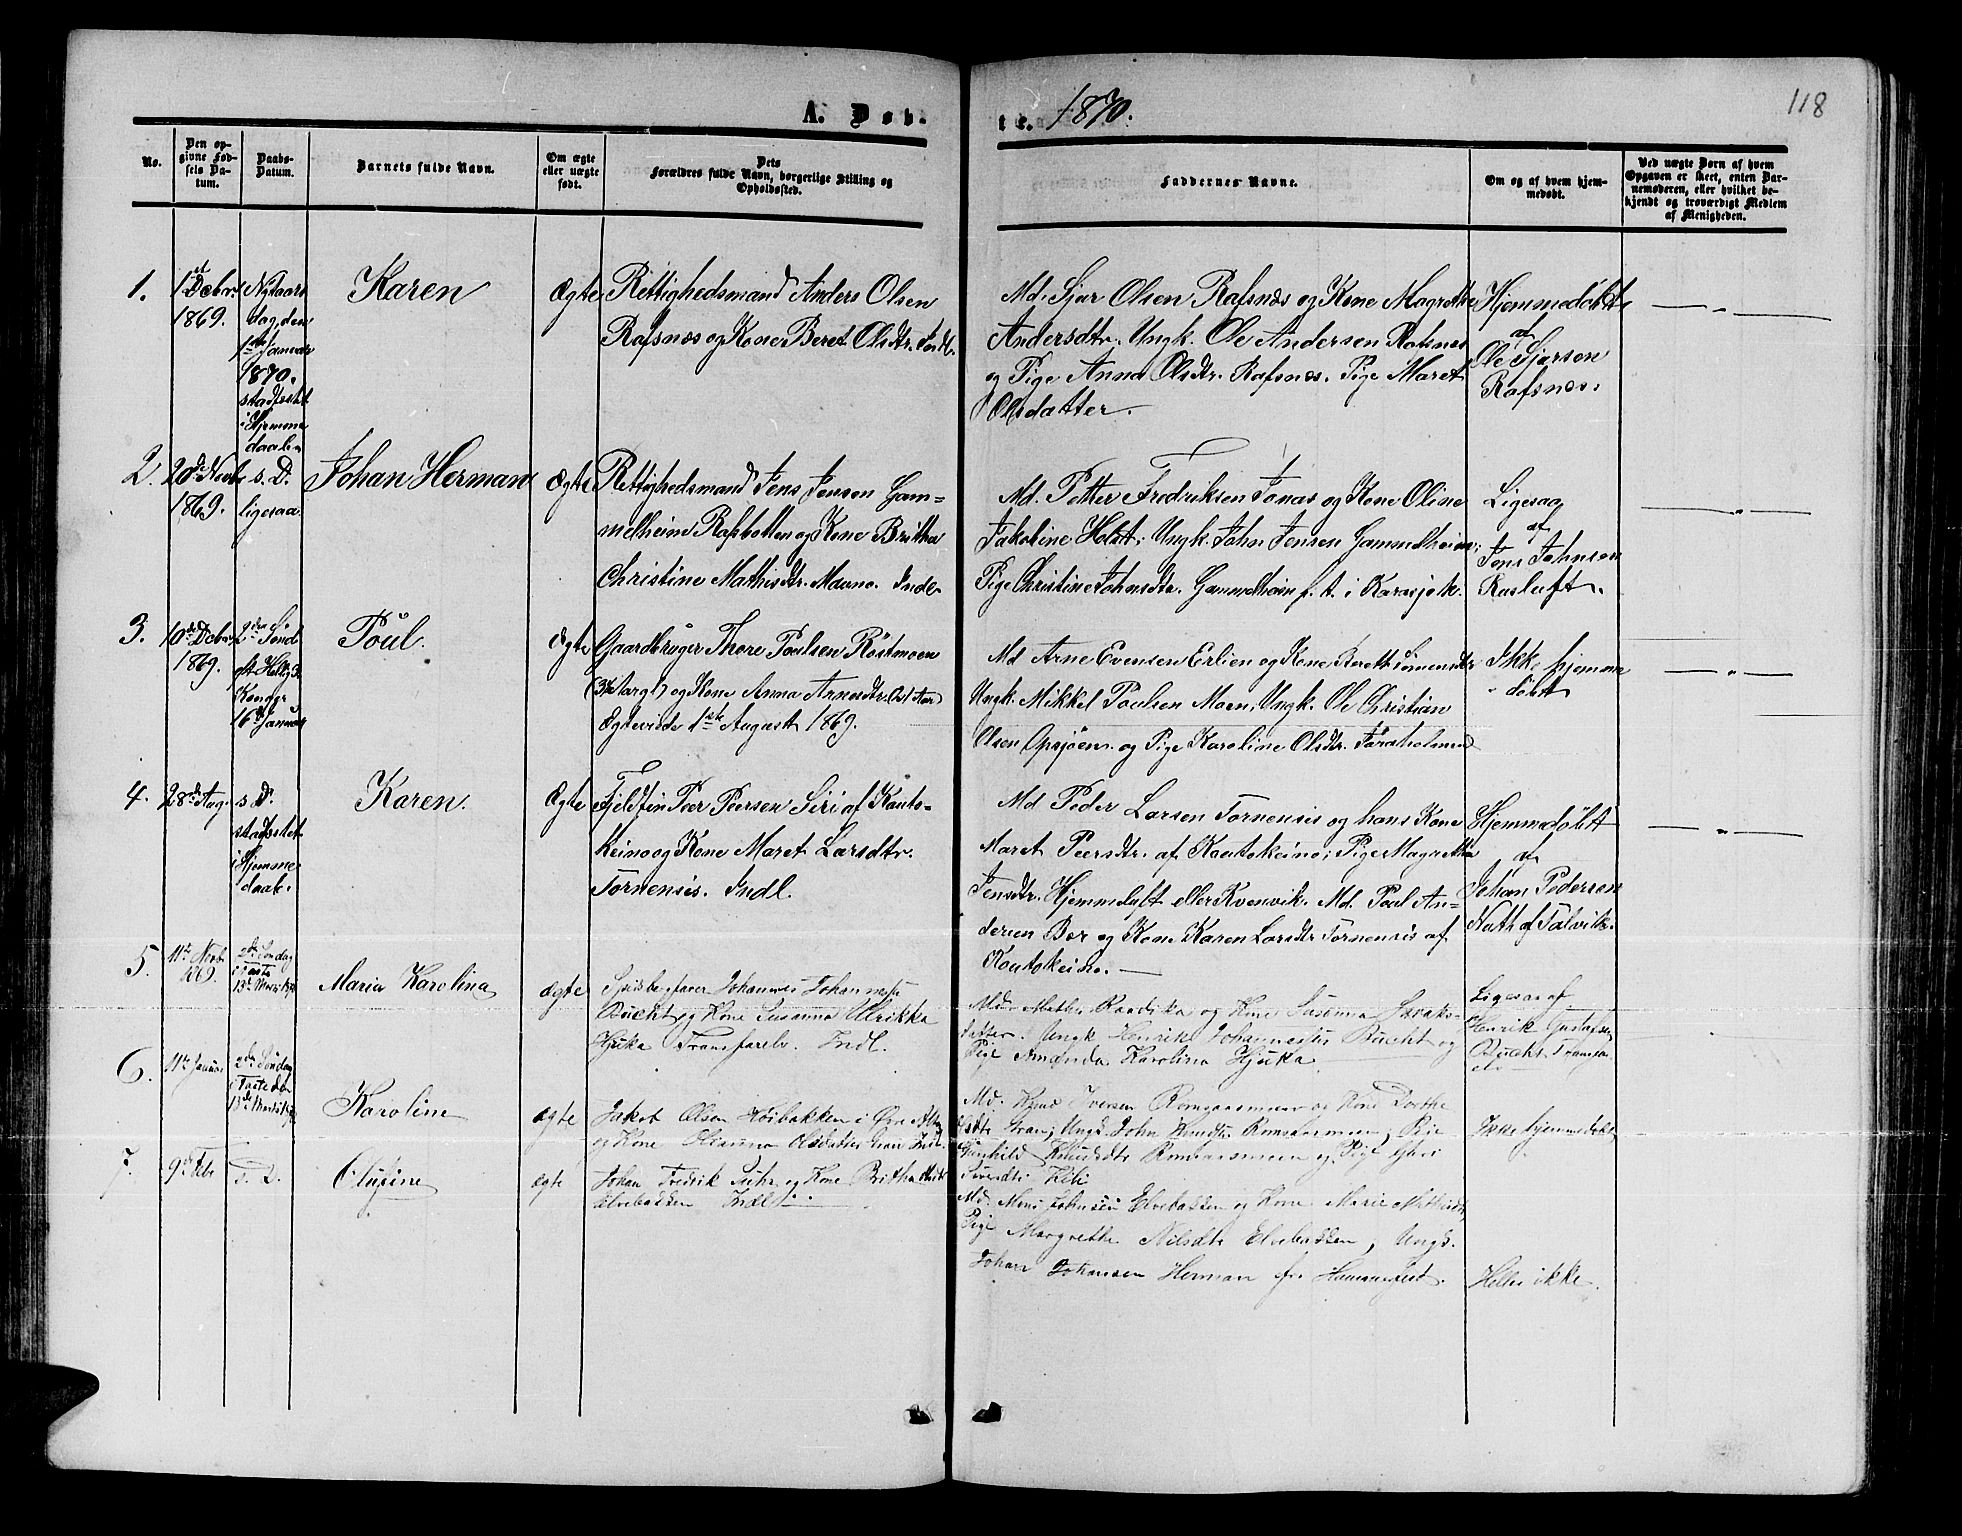 A. Døb-
te. 1870.
118
No.
Den op-
givne Fød-
sels Da-
tum.
Daabs-
Datum.
Barnets fulde Navn.
Om ægte
eller uægte
født.
Dets
Forældres fulde Navn, borgerlige Stilling og
Opholdssted.
Faddernes Navne.
Om og af hvem hjem-
medøbt.
Ved uægte Børn af hvem
Opgaven er skeet, enten Bar-
nemoderen, eller hvilket be-
kjendt og troværdigt Medlem
af Menigheden.
1.
1st Decbr.
1869.
Nytaars
dag, den
1ste Januar
1870.
stadfæstet
i Hjemme
daaben
Karen
Ægte
Rettighedsmand Anders Olsen
Rafsnæs og Kone Beret Olsdtr. Indl.
Md. Sjur Olsen Rafsnæs og Kone Magrethe
Andersdtr. Ungk. Ole Andersen Rafsnes
og Pige Anna Olsdtr. Rafsnæs. Pige Maret
Olsdatter.
Hjemmedøbt
af
Ole Sjursen
Rafsnæs.
2.
20de Novb
1869.
s. D.
ligesaa
Johan Herman
Ægte
Rettighedsmand Jens Jensen Gam-
melheim Rafsbotten og Kone Britha
Christine Mathisdtr. Maano. Indl.
Md. Petter Fredriksen Jonas og Kone Oline
Jakobine Holst; Ungk. John Jensen Gammelheim;
Pige Christine Johnsdtr. Gammelheim f. t. i Karasjok.
Ligesaa
af
Jons Johnsen
Rusluft.
3.
10de Decbr.
1869.
2den Sønd
eft. Hellig 3
Konger
16de Januar
Poul.
Ægte
Gaardbruger Thore Poulsen Røstmoen
og Kone Anna Arnesdtr.
Ægteviede 1ste August 1869.
Md Arne Evensen Erlien og Kone Berett Simensdtr
Ungk. Mikkel Poulsen Moen, Ungk. Ole Christian
Olsen Opsjøen. og Pige Karoline Olsdtr. Furuholmen
Ikke hjemme
døbt
4.
28de Aug.
s. D.
stadfæstet
i Hjemme
daab.
Karen.
Ægte
Fjeldfin Peer Peersen Siri af Kauto-
keino og Kone Maret Larsdtr.
Tornensis. Indl.
Md Peder Larsen Tornensis og hans Kone
Maret Peersdtr. af Kautokeino; Pige Magretha
Jensdtr. Hjemmeluft eller Kvenvik. Md. Poul An-
dersen Bær og Kone Karen Larsdtr Tornensis af
Kautokeino.
Hjemmedøbt
af
Johan Pedersen
Nath af Talvik.
5.
11te Novb
1869.
2den Søndag
i Faste
13de Marts
Maria Karolina
ægte
Johannes Johannes
Bucht og Kone Susanna Ulrikka
Hjuka Transfarelv. Indl.
Md. Mathis Raadika og Kone Susanna Isaks-
datter. Ungk Henrik Johannesen Bucht og
Pige Amanda Karolina Hjuka.
Ligesaa af
Henrik Gustafsen
Bucht Transfar
elv
6.
11te Januar
2den Søndag
i Faste den
13de Marts
Karoline
ægte
Jakob Olsen Høibakken i Øvre Alten
og Kone Olianna Olsdatter Indl.
Md. Knud Iversen Romsaasmoen og Kone Dorthe
Olsdtr Stran; Ungk. John Knudsen Romsaasmoen; Pige
Gunhild Knudsdtr Romsaasmoen og Pige
Ikke hjemmedøbt
7.
9de Febr
s. D.
Olufine
ægte
Johan Fredrik Suhr og Kone Britha
Elvebakken Indl.
Md. Mons Johnsen Elvebakken og Kone Marie
Pige Margrethe Nilsdtr Elvebakken, Ungk.
Johan Johansen Herman fra Hammerfest.
Heller ikke.